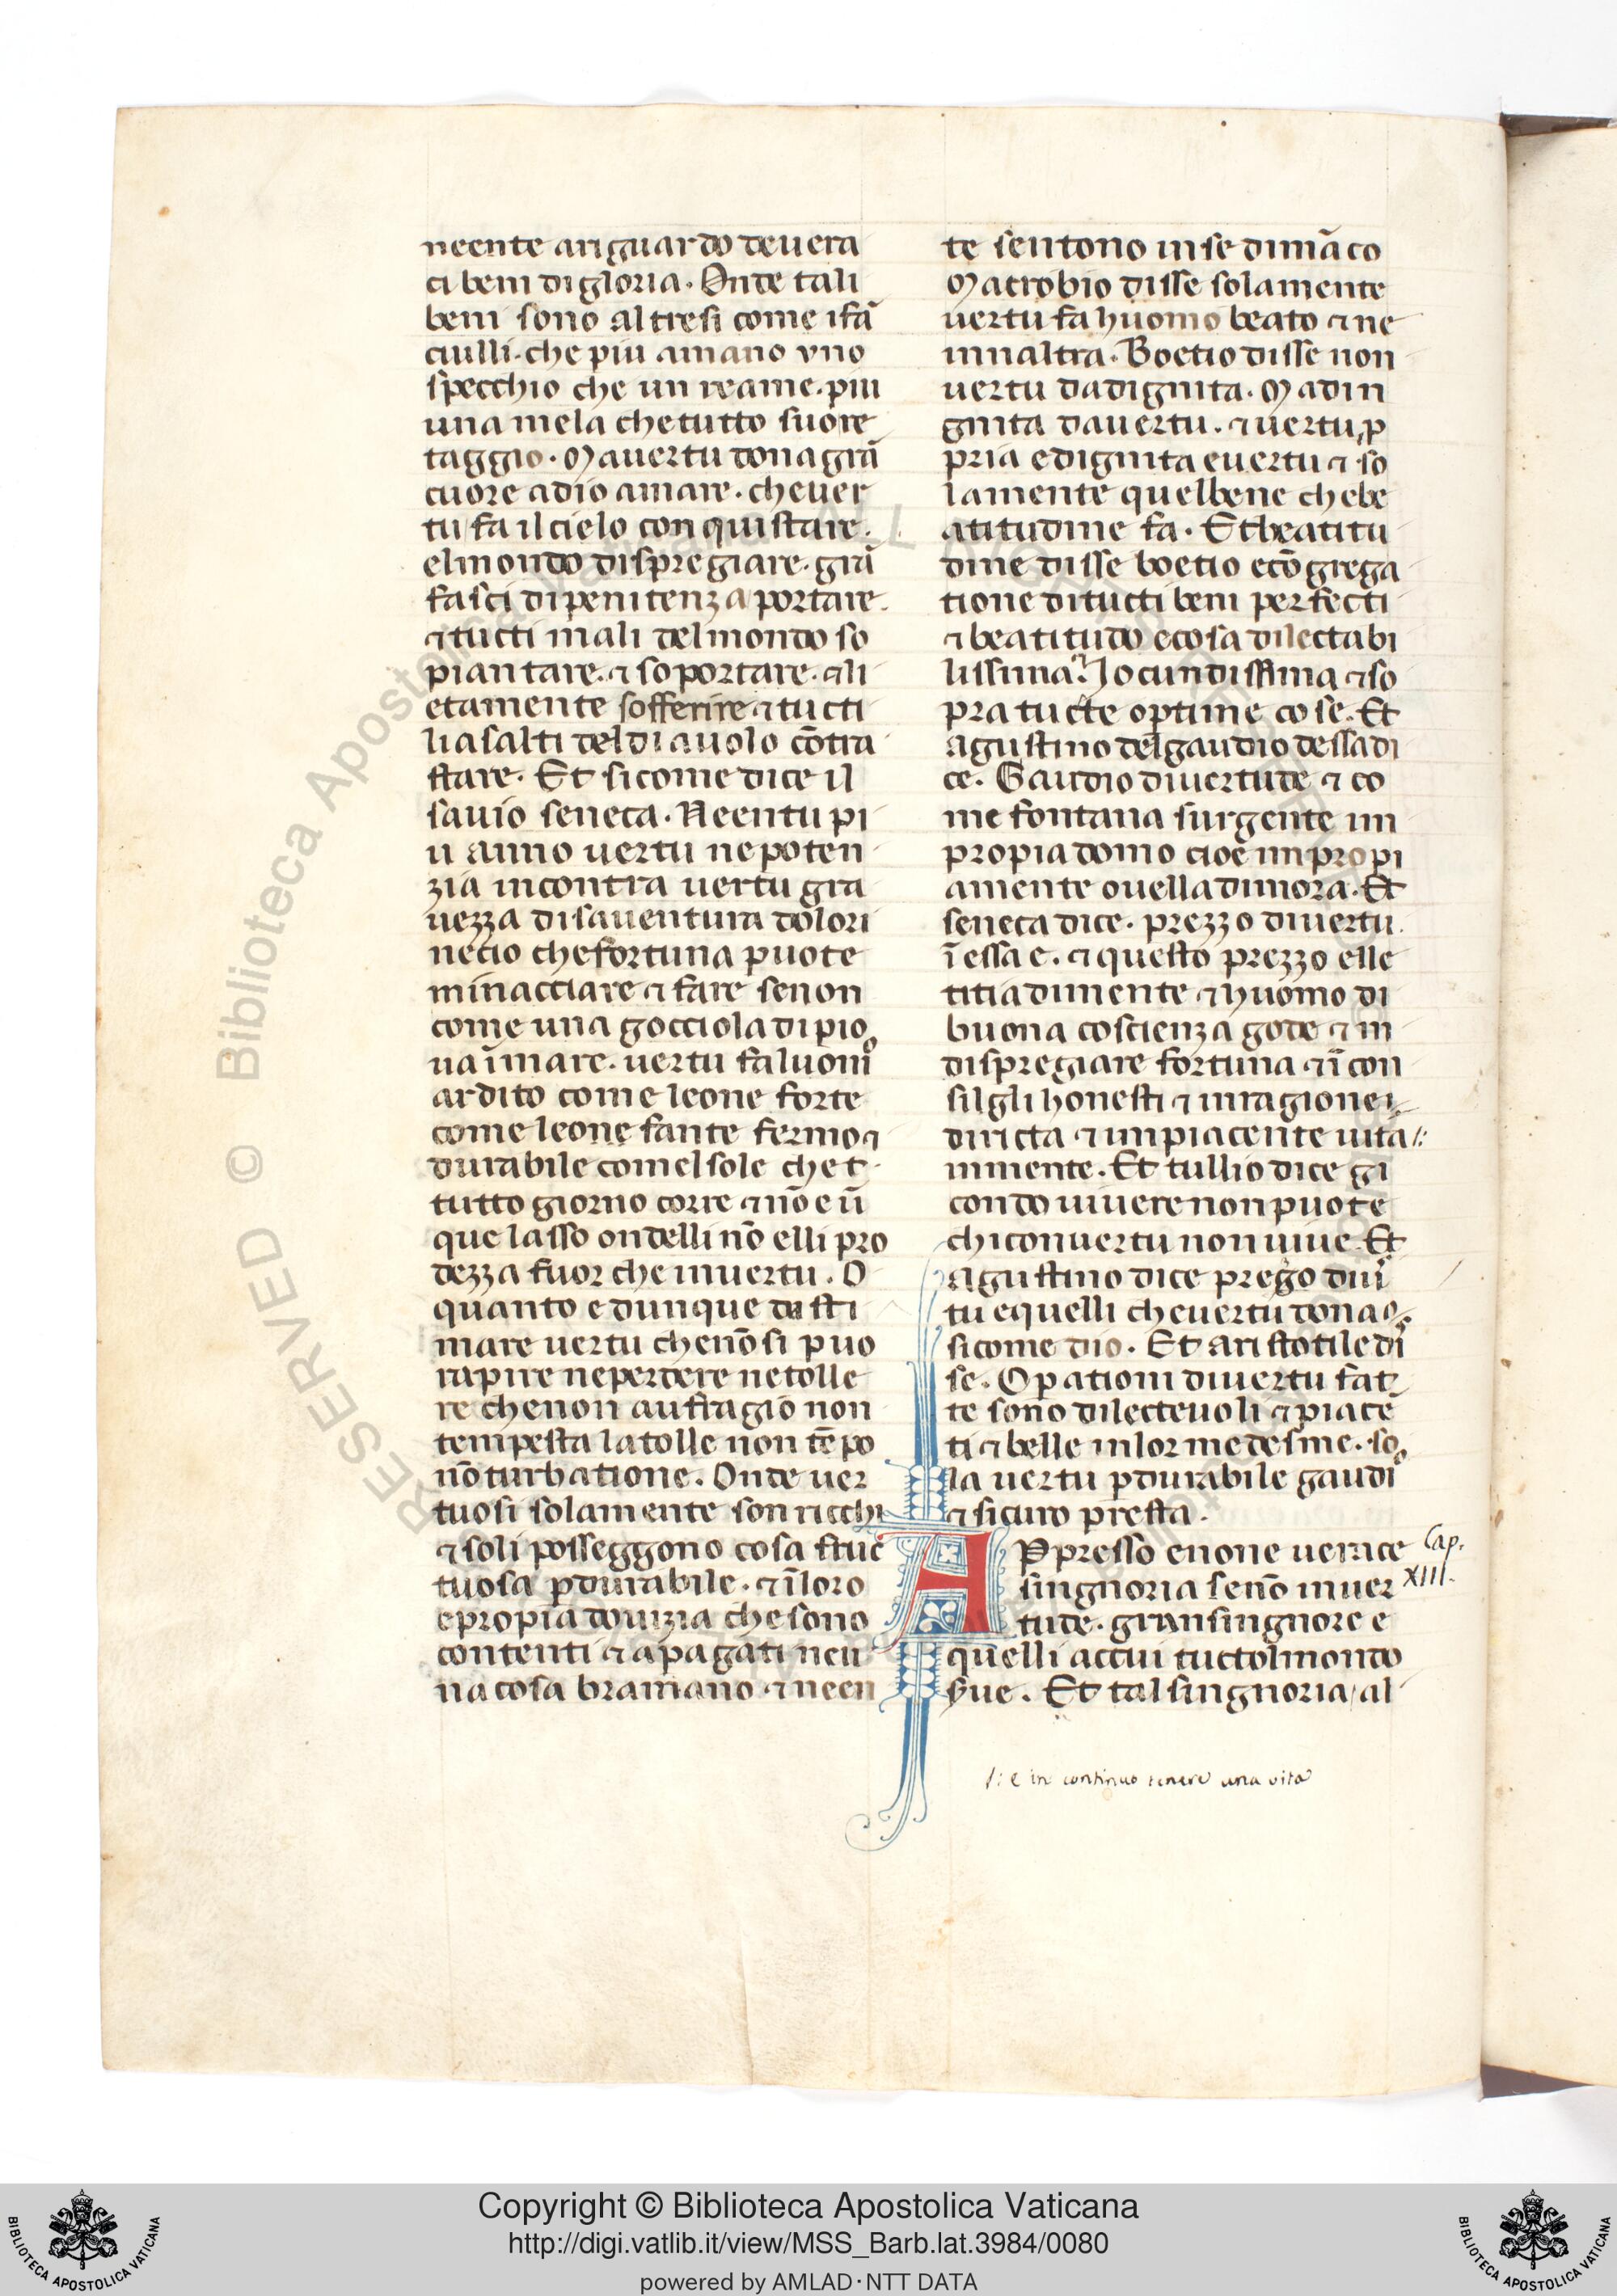 neente ariguardo deuera
ci beni digloria. Onde tali
beni sono altresi come ifā
ciulli. che piu amano vno
specchio che un reame. piu
una mela chetutto suore
taggio. Mauertu dona grā
cuore adio amare. cheuer
tu fa ilcielo conquistare.
elmondo dispregiare. grā
fasci dipenitenza portare.
⁊ tucti mali delmondo so
piantare. ⁊ soportare. ⁊ li
etamente sofferire ⁊ tucti
liasalti deldiauolo cōtra
stare. Et sicome dice il
sauio seneca. Neentu pi
u anno uertu nepoten
zia incontra uertu gra
uezza disauentura dolori
necio chefortuna puote
minacciare ⁊ fare senon
come una gocciola dipio
ua īmare. uertu faluomo
ardito come leone forte
come leone fante fermo ⁊
durabile comelsole che t
tutto giorno corre ⁊ nōe ū
que lasso ondelli nō elli pro
dezza fuor che inuertu. O
quanto e dunque da sti
mare uertu chenōsi puo
rapire neperdere netolle
re chenon aufragio non
tempesta latolle non tēpo
nōturbatione. Onde uer
tuosi solamente son ricchi
⁊ soli posseggono cosa fruc
tuosa ꝑdurabile. ⁊ īloro
epropia douizia che sono
contenti ⁊ apagati neu
na cosa bramano ⁊ neen
te sentono inse dimāco
Macrobio disse solamente
uertu fa huomo beato ⁊ ne
innaltra. Boetio disse non
uertu dadignita. Madin
gnita dauertu. ⁊ uertu ꝓ
pria edignita euertu ⁊ so
lamente quelbene chebe
atitudine fa. Et beatitu
dine disse boetio ecōgrega
tione ditucti beni perfecti
⁊ beatitudo ecosa dilectabi
lissima. Jocundissima ⁊ so
pra tucte optime cose. Et
agustino delgaudio dessa di
ce. Gaudio diuertude ⁊ co
me fontana surgente im
propia domo cioe impropi
amente ouella dimora. Et
seneca dice. prezzo diuertu
ī essa e. ⁊ questo prezzo elle
titia dimente ⁊ huomo di
buona coscienza gode ⁊ in
dispregiare fortuna ⁊ ī con
silgli honesti ⁊ inragione
diricta ⁊ impiacente uita /:
inmente. Et tullio dice gi
condo uiuere non puote
chi conuertu non uiue. Et
agustino dice prego diui
tu equelli cheuertu dona
sicome dio. Et aristotile di
se. Opationi diuertu fat
te sono dilecteuoli ⁊ piacē
ti ⁊ belle inlor medesme. so
la uertu ꝑdurabile gaudio
⁊ sicuro presta.
APpresso enone uerace
singnoria senō inuer
tude. gransingnore e
quelli accui tuctolmondo
sue. Et tal singnoria al
Cap.
XIII.
/: e in continuo tenere una vita
© Biblioteca Apostolica Vaticana ALL RIGHTS RESERVED
Copyright © Biblioteca Apostolica Vaticana
http://digi.vatlib.it/view/MSS_Barb.lat.3984/0080
powered by AMLAD·NTT DATA
BIBLIOTECA APOSTOLICA VATICANA
BIBLIOTECA APOSTOLICA VATICANA